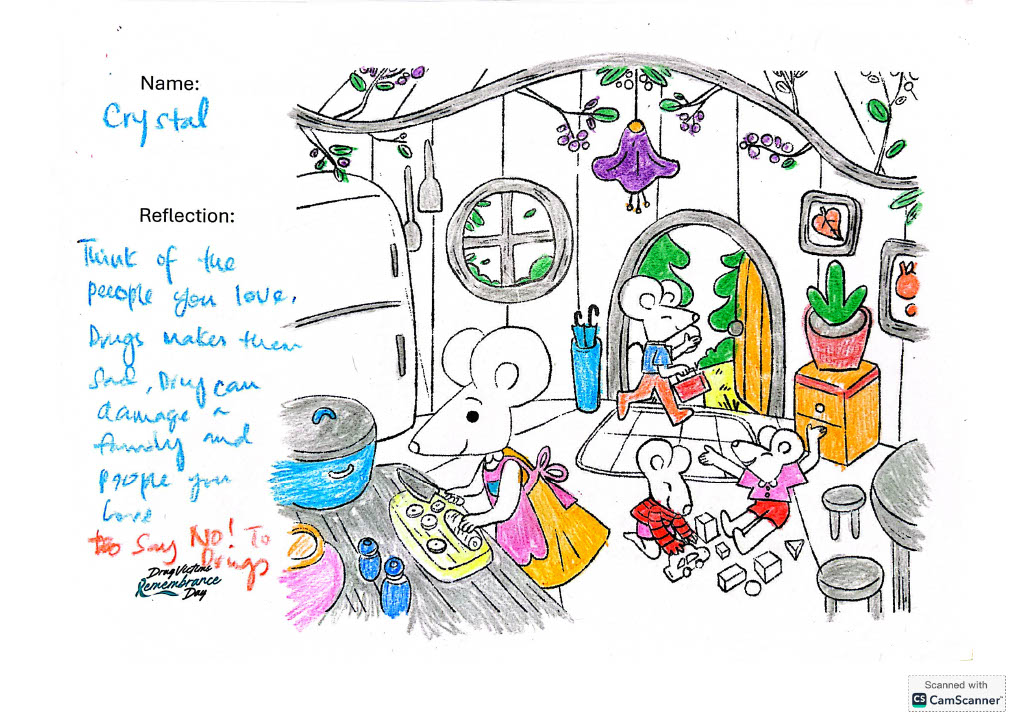 Name:
Crystal
Reflection:
Think of the
pecople you love.
Drugs makes them
Sad, Drug can
damage a
family and
people you
love.
to Say NO! To
Drugs
Drug Victims
Remembrance
Day
Scanned with
CS CamScanner